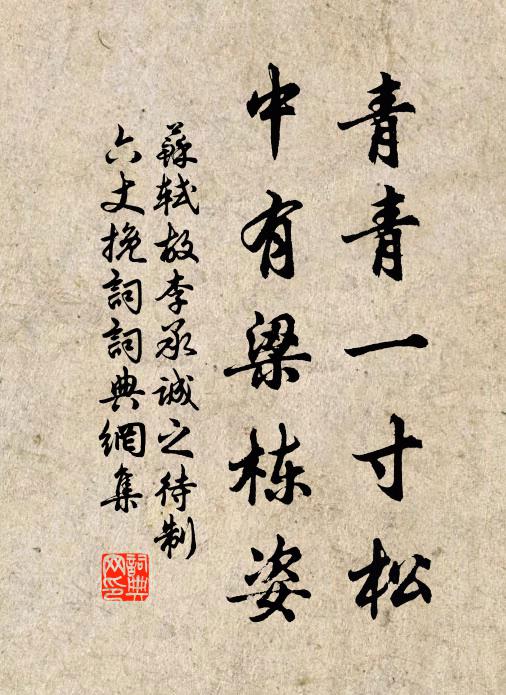 青青一寸松
中有梁栋姿
蘇軾故李承誠之待制
六丈挽詞詞典網集
詞典
网印